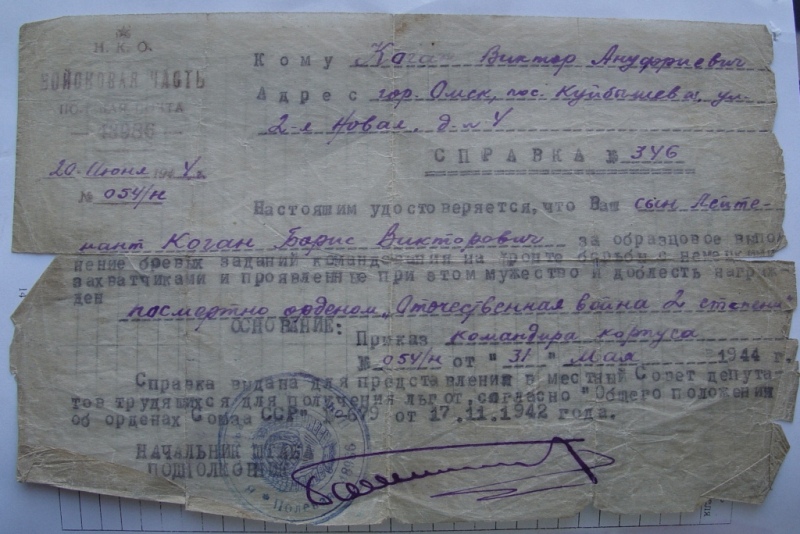 Н. К. О.
ВОЙСКОВАЯ ЧАСТЬ
ПОЛЕВАЯ ПОЧТА
20 Июня 1944 г.
№ 054/н
Кому Коган Виктор Ануфриевич
Адрес гор. Омск, пос. Куйбышева, ул.
2-я Новая, д. № 4
СПРАВКА № 346
Настоящим удостоверяется, что Ваш сын Лейте-
нант Коган Борис Викторович за образцовое выпол
нение боевых заданий командования на фронте борьбы с немецкими
захватчиками и проявленные при этом мужество и доблесть награж
ден посмертно орденом „Отечественная война 2 степени"
ОСНОВАНИЕ:
Приказ командира корпуса
№ 054/н от "31" Мая 1944 г.
Справка выдана для представления в местный Совет депута
тов трудящихся для получения льгот, согласно "Общего положения
об орденах Союза ССР" от 17.11.1942 года.
НАЧАЛЬНИК ШТАБА
ПОДПОЛКОВНИК